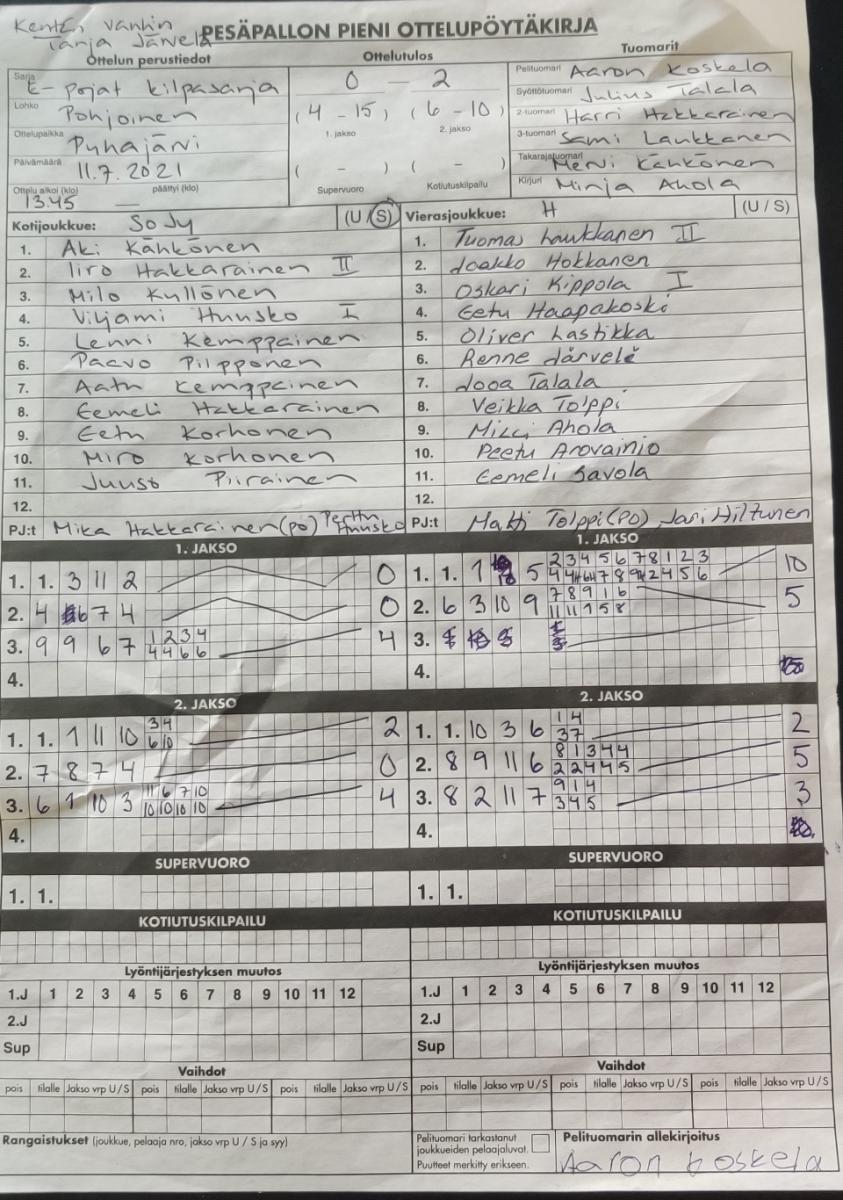 Kentän vanhin
Tarja Järvelä
PESÄPALLON PIENI OTTELUPÖYTÄKIRJA
Ottelun perustiedot
Ottelutulos
Tuomarit
Sarja E-pojat kilpasarja
Lohko Pohjoinen
Ottelupaikka Pyhäjärvi
Päivämäärä 11.7.2021
Ottelu alkoi (klo) 13.45 päättyi (klo)
0 - 2
(4 - 15) (6 - 10)
1. jakso 2. jakso
( - ) ( - )
Supervuoro Kotiutuskilpailu
Pelituomari Aaron Koskela
Syöttötuomari Julius Talala
2-tuomari Harri Hakkarainen
3-tuomari Sami Laukkanen
Takarajatuomari Mervi Kähkönen
Kirjuri Minja Ahola
Kotijoukkue: SoJy (U/S)
1. Aki Kähkönen
2. Iiro Hakkarainen II
3. Milo Kyllönen
4. Viljami Huusko I
5. Lenni Kemppainen
6. Paavo Piipponen
7. Aatu Kemppainen
8. Eemeli Hakkarainen
9. Eetu Korhonen
10. Miro Korhonen
11. Juuso Piirainen
12.
PJ:t Mika Hakkarainen (po) Perttu Huusko
Vierasjoukkue: H (U/S)
1. Tuomas Laukkanen II
2. Jaakko Hokkanen
3. Oskari Kippola I
4. Eetu Haapakoski
5. Oliver Lastikka
6. Renne Järvelä
7. Jooa Talala
8. Veikka Tolppi
9. Ahola
10. Peetu Arovainio
11. Eemeli Savola
12.
PJ:t Matti Tolppi (PO), Jari Hiltunen
1. JAKSO
1. 1. 3 11 2 0
2. 4 6 7 4 0
3. 9 9 6 7 1 2 3 4 4
4 4 6 6
4.
2. JAKSO
1. 1. 1 11 10 3 4 2
6 10
2. 7 8 7 4 0
3. 6 1 10 3 11 6 7 10 4
10 10 10 10
4.
SUPERVUORO
1. 1.
KOTIUTUSKILPAILU
Lyöntijärjestyksen muutos
1.J 1 2 3 4 5 6 7 8 9 10 11 12
2.J
Sup
Vaihdot
pois tilalle Jakso vrp U/S pois tilalle Jakso vrp U/S pois tilalle Jakso vrp U/S
Rangaistukset (joukkue, pelaaja nro, jakso vrp U / S ja syy)
1. JAKSO
1. 1. 1 5 2 3 4 5 6 7 8 1 2 3 10
2. 6 3 10 9 7 8 9 1 6 5
11 11 1 5 8
3.
4.
2. JAKSO
1. 1. 10 3 6 1 4 2
3 7
2. 8 9 11 6 8 1 3 4 4 5
2 2 4 4 5
3. 8 2 11 7 9 1 4 3
3 4 5
4.
SUPERVUORO
1. 1.
KOTIUTUSKILPAILU
Lyöntijärjestyksen muutos
1.J 1 2 3 4 5 6 7 8 9 10 11 12
2.J
Sup
Vaihdot
pois tilalle Jakso vrp U/S pois tilalle Jakso vrp U/S pois tilalle Jakso vrp U/S
Pelituomari tarkastanut
joukkueiden pelaajaluvat.
Puutteet merkitty erikseen.
Pelituomarin allekirjoitus
Aaron Koskela